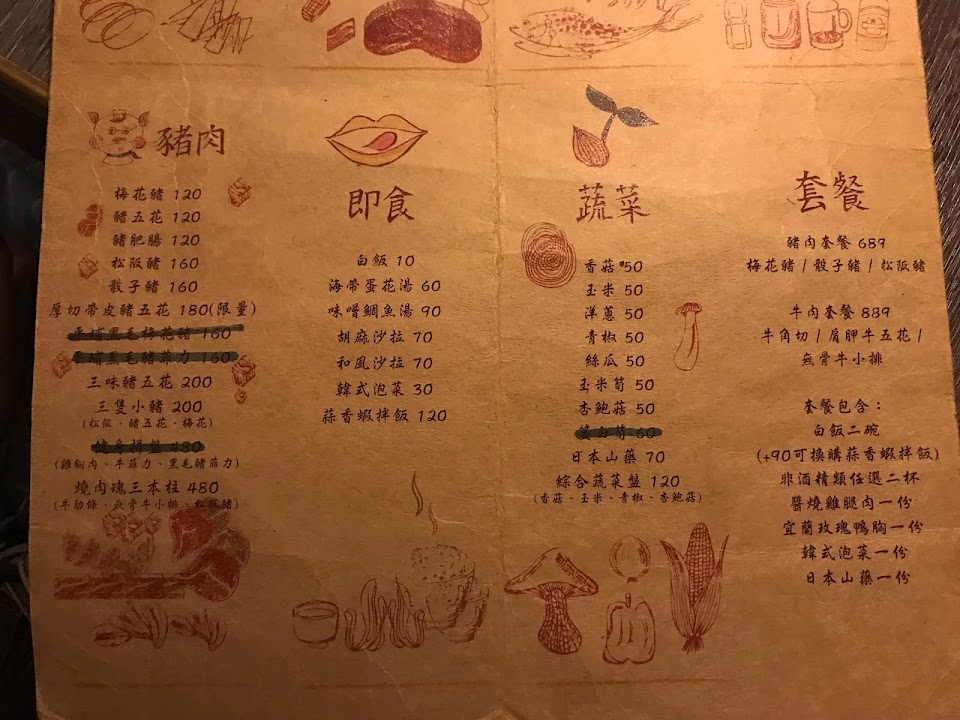 豬肉
梅花豬 120
豬五花 120
豬肥腸 120
松阪豬 160
骰子豬 160
厚切帶皮豬五花 180(限量)
平埔黑毛梅花豬 160
平埔黑毛豬菲力 160
三味豬五花 200
三隻小豬 200
(松阪、豬五花、梅花)
健身拼盤 480
(雞胸肉、牛菲力、黑毛豬菲力)
燒肉魂三本柱 480
(牛肋條、無骨牛小排、松阪豬)
即食
白飯 10
海帶蛋花湯 60
味噌鯛魚湯 90
胡麻沙拉 70
和風沙拉 70
韓式泡菜 30
蒜香蝦拌飯 120
蔬菜
香菇 50
玉米 50
洋蔥 50
青椒 50
絲瓜 50
玉米筍 50
杏鮑菇 50
筊白筍 60
日本山藥 70
綜合蔬菜盤 120
(香菇、玉米、青椒、杏鮑菇)
套餐
豬肉套餐 689
梅花豬 / 骰子豬 / 松阪豬
牛肉套餐 889
牛角切 / 肩胛牛五花 /
無骨牛小排
套餐包含：
白飯二碗
(+90可換購蒜香蝦拌飯)
非酒精類任選二杯
醬燒雞腿肉一份
宜蘭玫瑰鴨胸一份
韓式泡菜一份
日本山藥一份